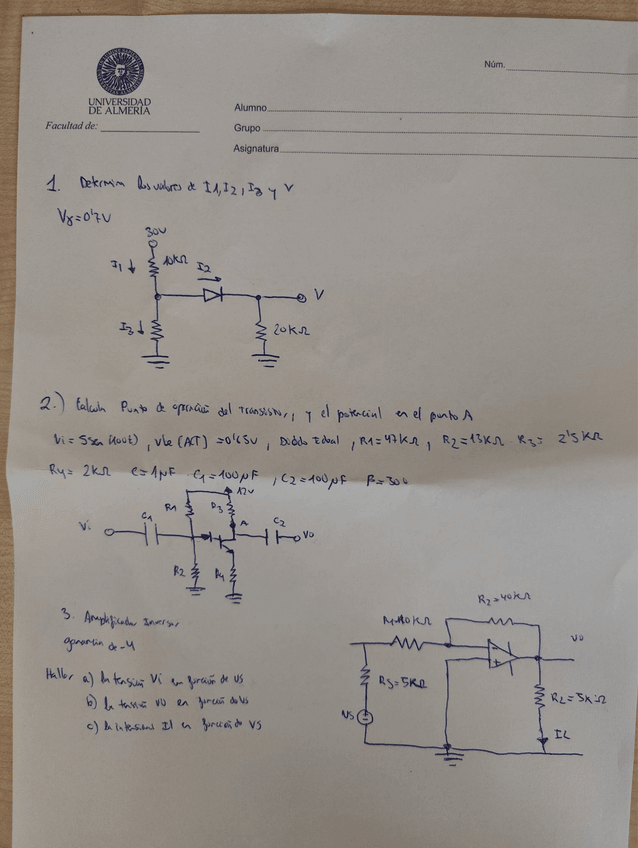 Núm.
UNIVERSIDAD
DE ALMERÍA
Facultad de:
Alumno
Grupo
Asignatura
1. Determina los valores de I1, I2, I3 y V
Vγ=0'7V
30V
I1 10KΩ I2
V
I3 20KΩ
2.) Calcula Punto de operación del Transistor, y el potencial en el punto A
Vi = 5sen(100t), Vbe (ACT) = 0'65V, Diodo Ideal, R1=47KΩ, R2=13KΩ R3= 2'5KΩ
R4= 2KΩ C=1µF C1=100µF, C2=100µF β=300
12V
R1 R3
Vi C1 A C2 VO
R2 R4
3. Amplificador Inversor
ganancia de -4
Hallar a) la tensión Vi en función de VS
b) la tensión VO en función de VS
c) la intensidad IL en función de VS
R2=40KΩ
R1=10KΩ
VO
R3=5KΩ
RL=5KΩ
VS
IL